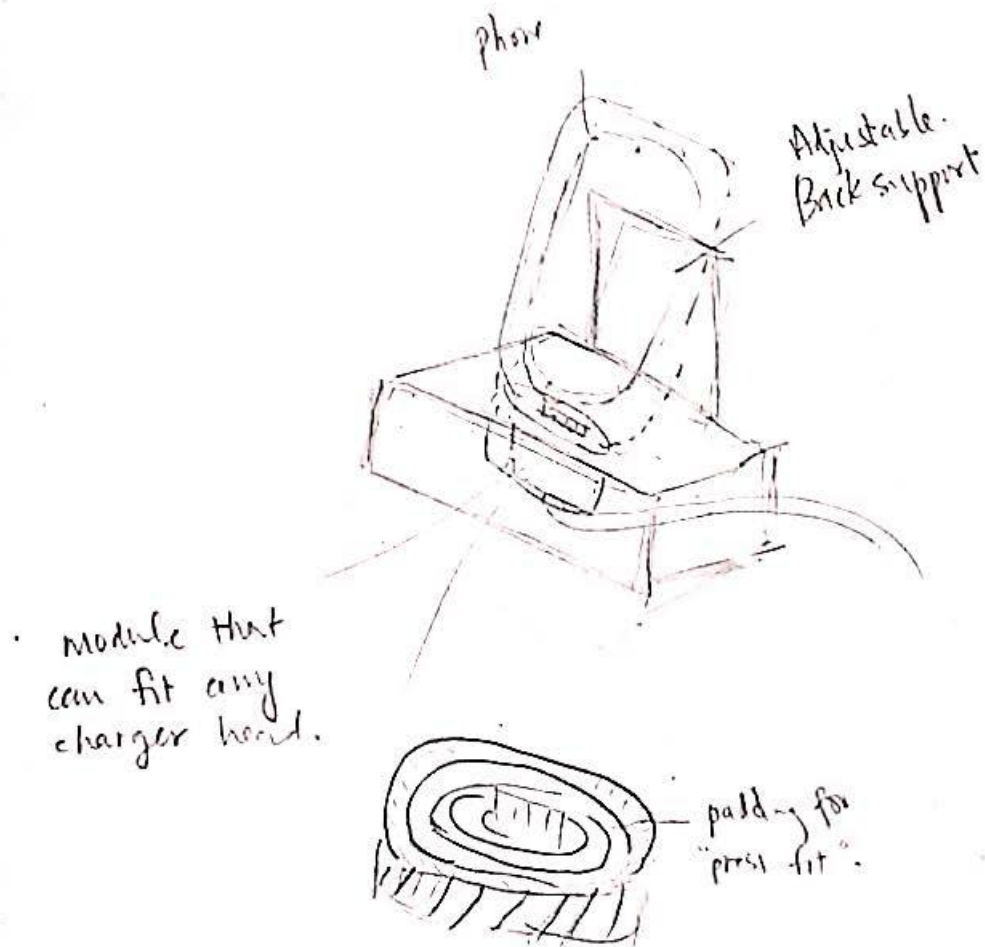 phone
Adjustable.
Back support
module that
can fit any
charger head.
padding for
"press fit".